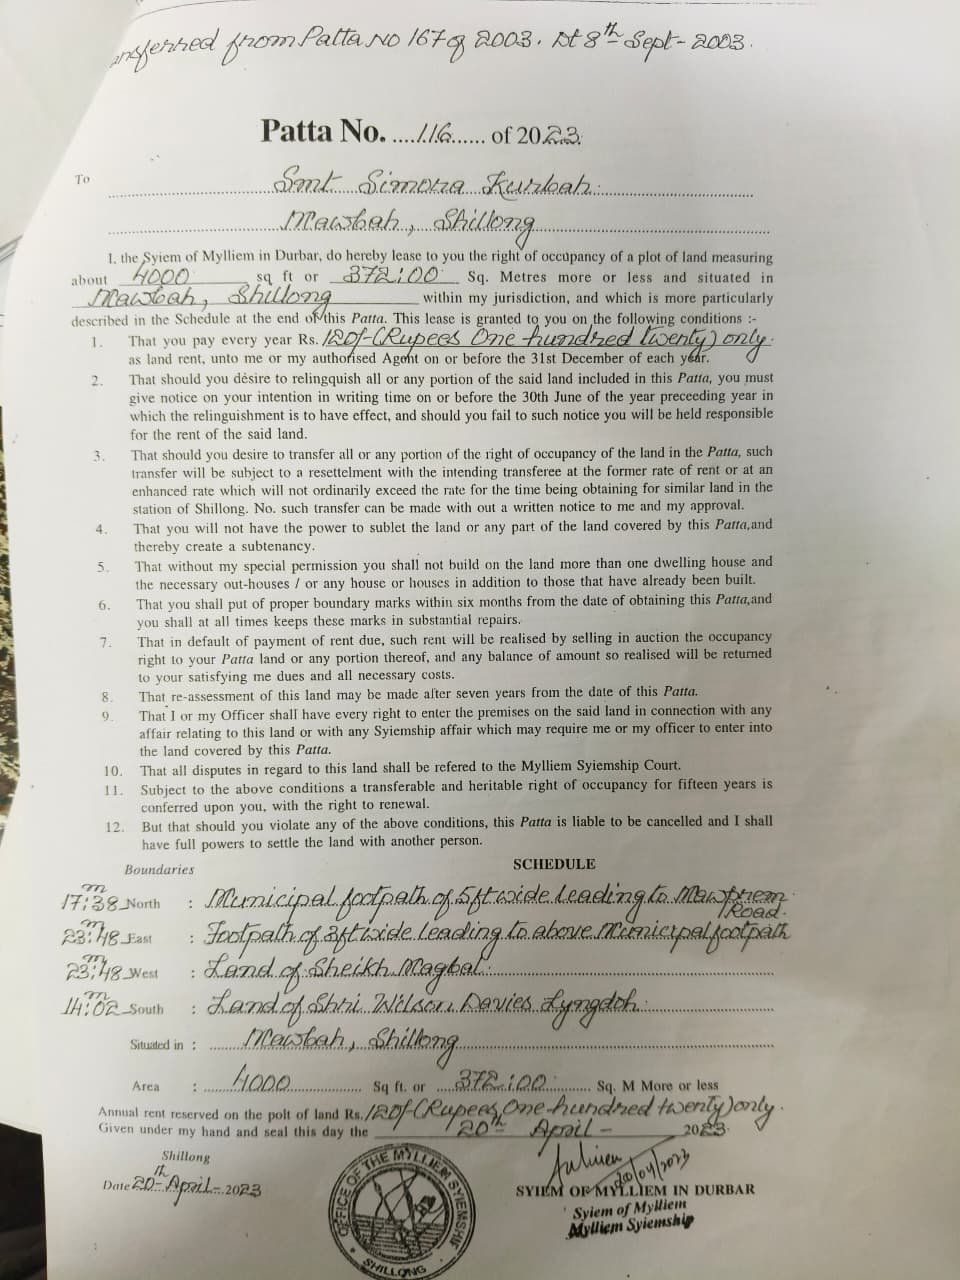 ansferred from Patta No 167 of 2003. Dt 8th Sept- 2003.
Patta No. ....116...... of 2023.
To
Smt. Simona Kurbah.
Mawbah, Shillong
I, the Syiem of Mylliem in Durbar, do hereby lease to you the right of occupancy of a plot of land measuring
about 4000 sq ft or 372:00 Sq. Metres more or less and situated in
Mawbah, Shillong within my jurisdiction, and which is more particularly
described in the Schedule at the end of this Patta. This lease is granted to you on the following conditions :-
1. That you pay every year Rs. 120/- (Rupees One hundred twenty) only.
as land rent, unto me or my authorised Agent on or before the 31st December of each year.
2. That should you desire to relingquish all or any portion of the said land included in this Patta, you must
give notice on your intention in writing time on or before the 30th June of the year preceeding year in
which the relinguishment is to have effect, and should you fail to such notice you will be held responsible
for the rent of the said land.
3. That should you desire to transfer all or any portion of the right of occupancy of the land in the Patta, such
transfer will be subject to a resettelment with the intending transferee at the former rate of rent or at an
enhanced rate which will not ordinarily exceed the rate for the time being obtaining for similar land in the
station of Shillong. No. such transfer can be made with out a written notice to me and my approval.
4. That you will not have the power to sublet the land or any part of the land covered by this Patta,and
thereby create a subtenancy.
5. That without my special permission you shall not build on the land more than one dwelling house and
the necessary out-houses / or any house or houses in addition to those that have already been built.
6. That you shall put of proper boundary marks within six months from the date of obtaining this Patta,and
you shall at all times keeps these marks in substantial repairs.
7. That in default of payment of rent due, such rent will be realised by selling in auction the occupancy
right to your Patta land or any portion thereof, and any balance of amount so realised will be returned
to your satisfying me dues and all necessary costs.
8. That re-assessment of this land may be made after seven years from the date of this Patta.
9. That I or my Officer shall have every right to enter the premises on the said land in connection with any
affair relating to this land or with any Syiemship affair which may require me or my officer to enter into
the land covered by this Patta.
10. That all disputes in regard to this land shall be refered to the Mylliem Syiemship Court.
11. Subject to the above conditions a transferable and heritable right of occupancy for fifteen years is
conferred upon you, with the right to renewal.
12. But that should you violate any of the above conditions, this Patta is liable to be cancelled and I shall
have full powers to settle the land with another person.
Boundaries SCHEDULE
17:38 m North : Municipal footpath of 5ft wide leading to Mawprem Road.
23:48 m East : Footpath of 3ft wide leading to above Municipal footpath
23:48 m West : Land of Sheikh Magbal.
14:02 m South : Land of Shri Wilson Davies Lyngdoh.
Situated in : Mawbah, Shillong
Area : 4000 Sq ft. or 372:00 Sq. M More or less
Annual rent reserved on the polt of land Rs. 120/- (Rupees One hundred twenty) only.
Given under my hand and seal this day the 20th April - 2023.
Shillong
Date 20th - April - 2023
OFFICE OF THE MYLLIEM SYIEMSHIP
SHILLONG
20/04/2023
SYIEM OF MYLLIEM IN DURBAR
Syiem of Mylliem
Mylliem Syiemship